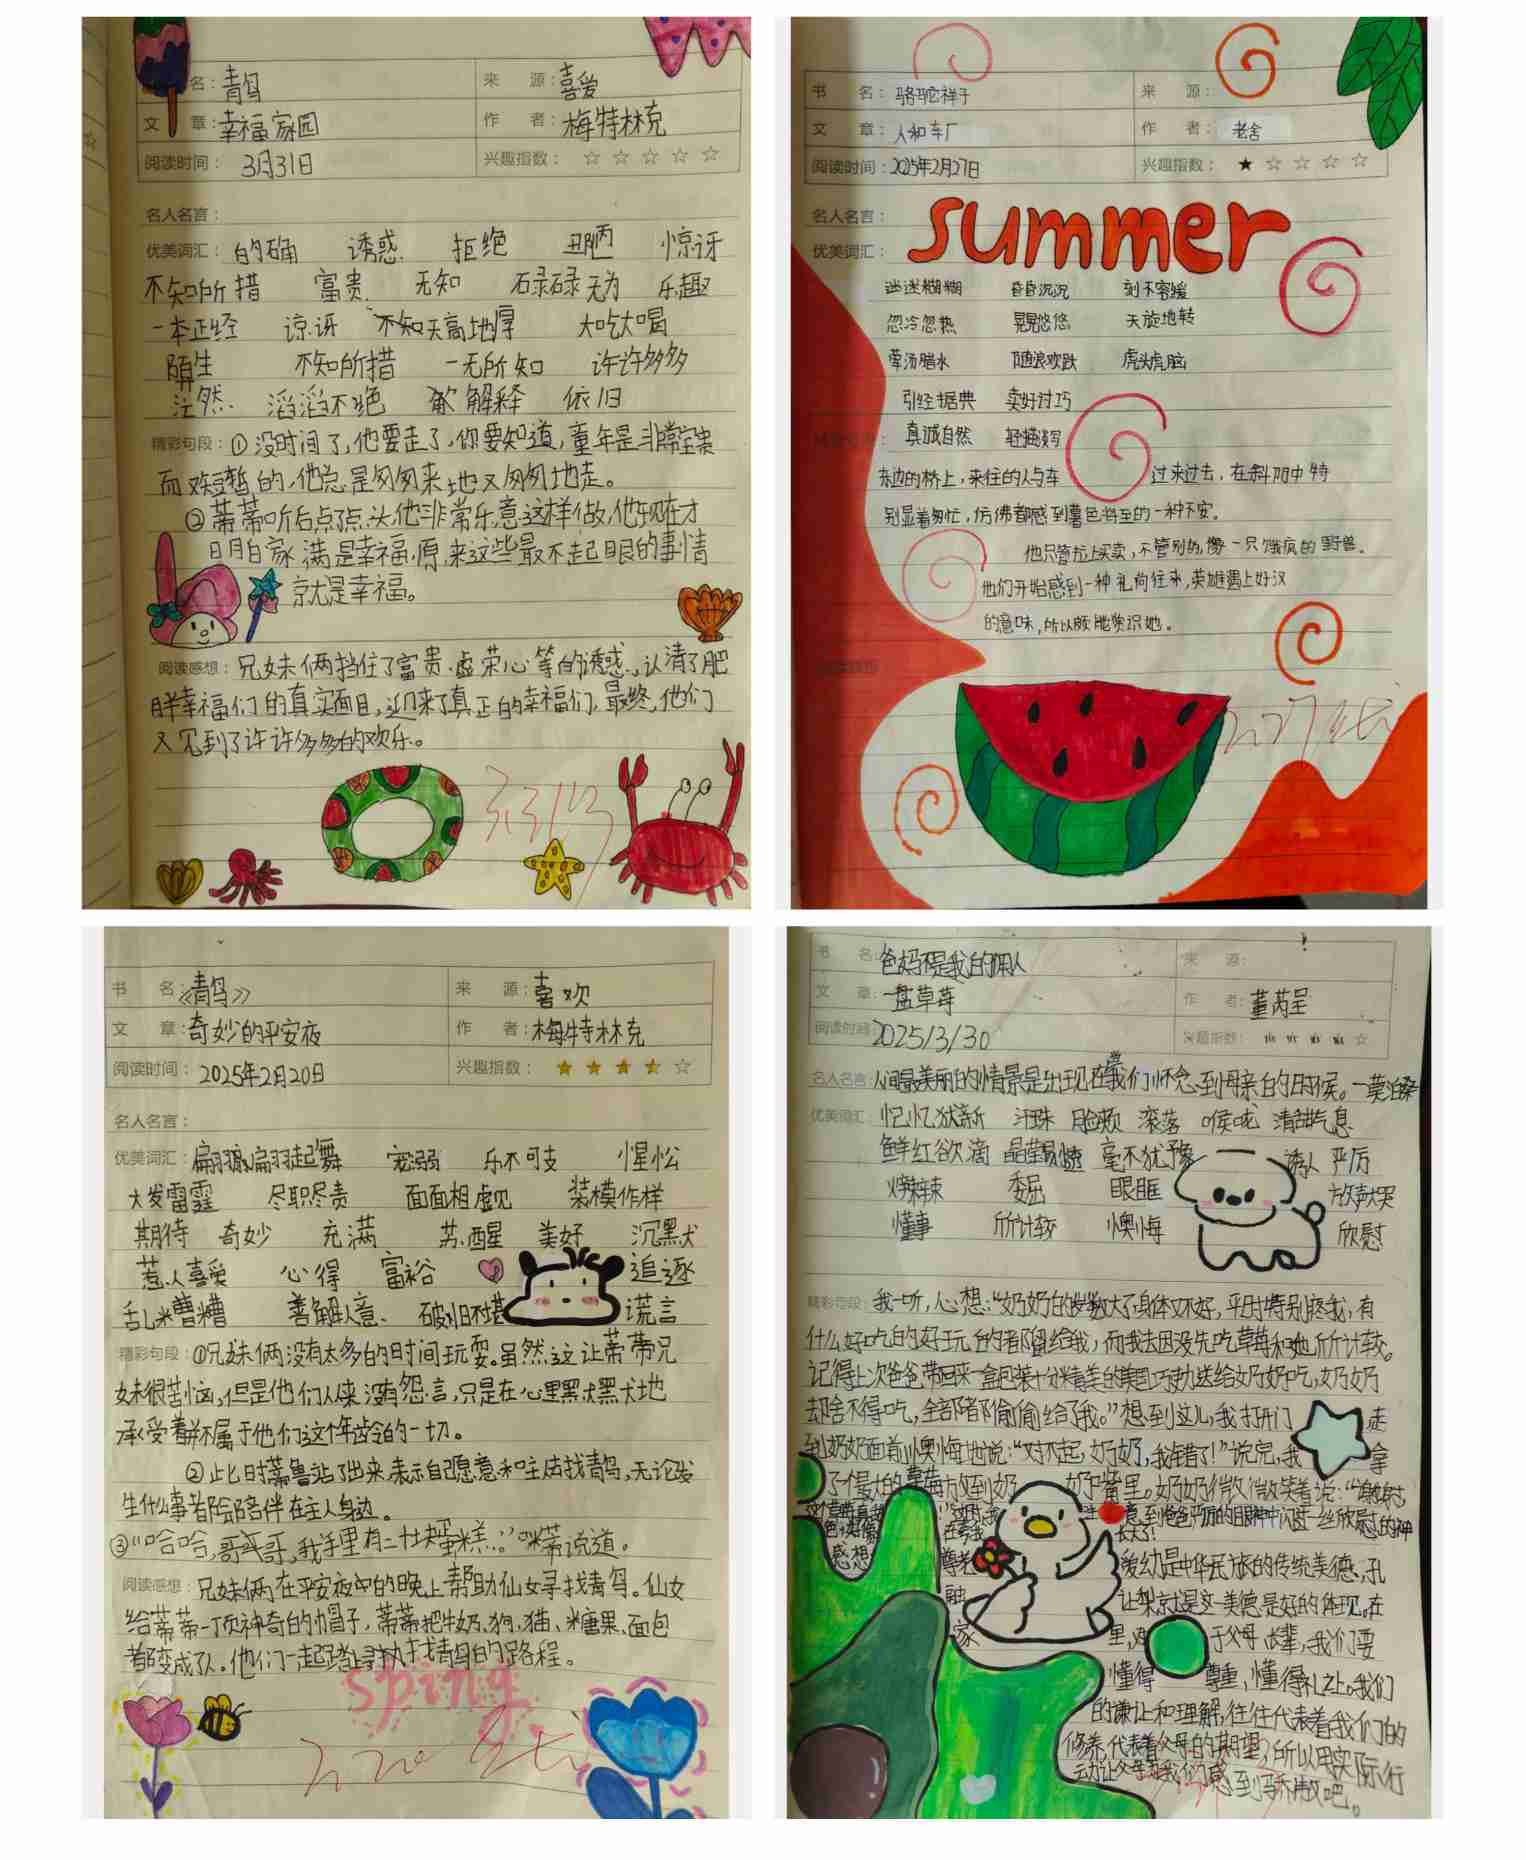 名：青鸟 来 源：喜爱
文 章：幸福家园 作 者：梅特林克
阅读时间：3月31日 兴趣指数：☆☆☆☆☆
名人名言：
优美词汇：的确 诱惑 拒绝 丑陋 惊讶
不知所措 富贵 无知 碌碌无为 乐趣
一本正经 谅讶 不知天高地厚 大吃大喝
陌生 不知所措 一无所知 许许多多
茫然 滔滔不绝 解释 依旧
精彩句段：①没时间了，他要走了，你要知道，童年是非常宝贵
而又短暂的，他总是匆匆来地又匆匆地走。
②蒂蒂听后点了点头，他非常乐意这样做，他现在才
明白家满是幸福，原来这些最不起眼的事情
就是幸福。
阅读感想：兄妹俩挡住了富贵、虚荣心等的诱惑，认清了肥
胖幸福们的真实面目，迎来了真正的幸福们，最终，他们
又见到了许许多多的欢乐。
书 名：骆驼祥子 来 源：
文 章：人和车厂 作 者：老舍
阅读时间：2025年2月27日 兴趣指数：★☆☆☆☆
名人名言：
summer
优美词汇：
迷迷糊糊 昏昏沉沉 刻不容缓
忽冷忽热 晃晃悠悠 天旋地转
零汤腊水 随浪欢跌 虎头虎脑
引经据典 卖好讨巧
真诚自然 轻描淡写
东边的桥上，来往的人与车过来过去，在斜阳中特
别显着匆忙，仿佛都感到暮色将至的一种不安。
他只管拉上买卖，不管别的，像一只饿疯的野兽。
他们开始感到一种礼尚往来，英雄遇上好汉
的意味，所以颇能赏识她。
书 名：《青鸟》 来 源：喜欢
文 章：奇妙的平安夜 作 者：梅特林克
阅读时间：2025年2月20日 兴趣指数：★★★★☆
名人名言：
优美词汇：翩翩起舞 宠溺 乐不可支 惺忪
大发雷霆 尽职尽责 面面相虚见 装模作样
期待 奇妙 充满 苏醒 美好 沉默
惹人喜爱 心得 富裕 追逐
乱糟糟 善解人意 破旧不堪 谎言
精彩句段：①兄妹俩没有太多的时间玩耍。虽然这让蒂蒂兄
妹很苦恼，但是他们从来没有怨言，只是在心里默默地
承受着并不属于他们这个年龄的一切。
②此时蒂鲁站了出来，表示自己愿意和主人去找青鸟，无论发
生什么事都会陪伴在主人身边。
③“哈哈，哥哥，我手里有二十块蛋糕。”咪蒂说道。
阅读感想：兄妹俩在平安夜的晚上帮助仙女寻找青鸟。仙女
给蒂蒂一顶神奇的帽子，蒂蒂把牛奶、狗、猫、糖果、面包
都变成了人。他们一起踏上寻找青鸟的路程。
sping
书 名：爸妈不是我的佣人 来 源：
文 章：一盘草莓 作 者：董芮呈
阅读时间：2025/3/30 兴趣指数：
名人名言：人间最美丽的情景是出现在当我们怀念到母亲的时候。一莫泊桑
优美词汇：忆忆犹新 汗珠 脸颊 滚落 喉咙 清甜气息
鲜红欲滴 晶莹剔透 毫不犹豫 诱人 严厉
火辣辣 委屈 眼眶 放声大哭
懂事 斤斤计较 懊悔 欣慰
精彩句段：我一听，心想：“奶奶的岁数大了，身体又不好，平时特别疼我，有
什么好吃的好玩的都留给我，而我去因没先吃草莓和她斤斤计较。
记得上次爸爸带回来一盒包装十分精美的美国巧克力送给奶奶吃，奶奶
却舍不得吃，全部都偷偷给了我。”想到这儿，我打开门 走
到奶奶面前懊悔地说：“对不起，奶奶，我错了！”说完，我 拿
了个最大的草莓放到奶 奶嘴里。奶奶微微笑着说：
意到爸爸严厉的眼神中闪过一丝欣慰的神
感想 尊老 爱幼是中华民族的传统美德，孔
融 让梨就是这一美德最好的体现。在
家 里，对 于父母、长辈，我们要
懂得 尊重，懂得礼让。我们
的谦让和理解，往往代表着我们的
修养，代表着父母的期望，所以用实际行
动让父母为我们感到骄傲吧。